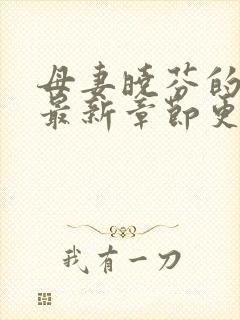 母妻晓芬的
最新章节更
我有一刀